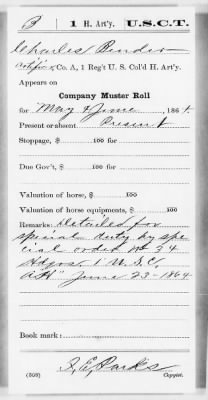 B | 1 H. Art'y. | U.S.C.T.
Charles Bender
Artific'r, Co. A, 1 Reg't U. S. Col'd H. Art'y.
Appears on
Company Muster Roll
for May & June, 1864.
Present or absent Present
Stoppage, $ 100 for
Due Gov't, $ 100 for
Valuation of horse, $ 100
Valuation of horse equipments, $ 100
Remarks: Detailed for
special duty by spe
cial order No 34
Hdqrs. 1" U.S.C.
A.H" June 23-1864
Book mark:
J. E. Parks
(358) Copyist.